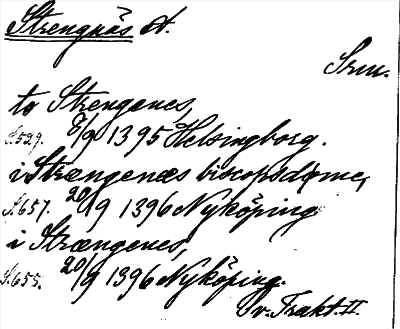 Strengnäs st.
Srm.
to Strengenes,
S.529. 8/9 1395 Helsingborg.
i Strængenæs biscopsdøme,
S.657. 20/9 1396 Nyköping
i Strængenes,
S.655. 20/9 1396 Nyköping.
Sv. Trakt. II.